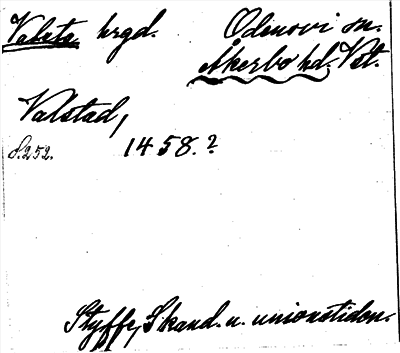 Valsta hrgd. Odensvi sn.
Åkerbo hd. Vst.
Valstad,
S. 252. 1458.?
Styffe, Skand. u. unionstiden.